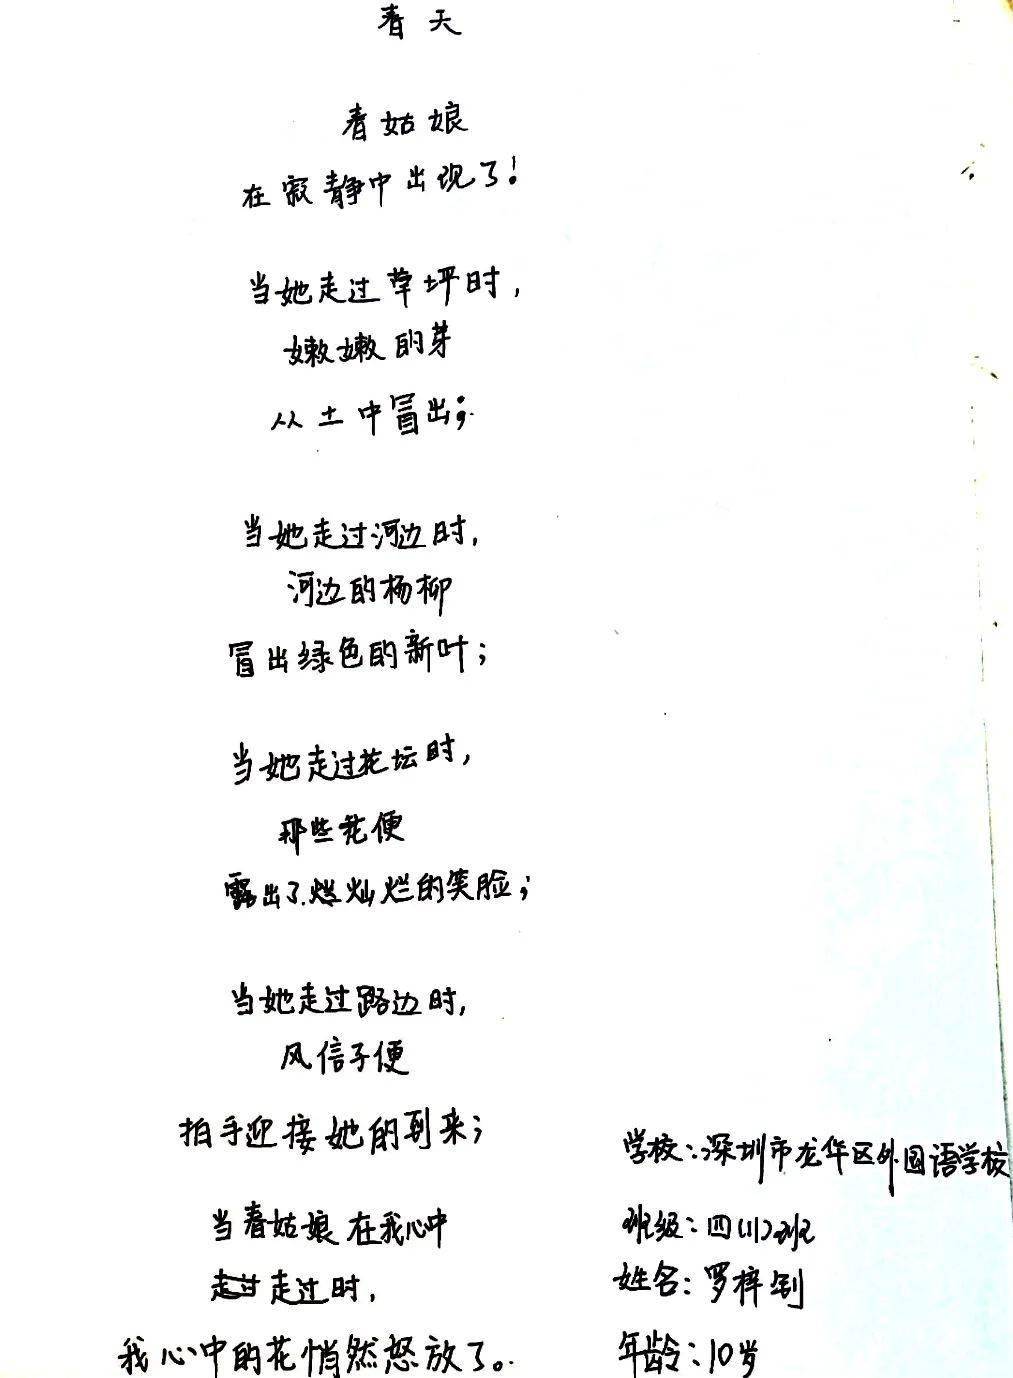 春天
春姑娘
在寂静中出现了！
当她走过草坪时，
嫩嫩的芽
从土中冒出；
当她走过河边时，
河边的杨柳
冒出绿色的新叶；
当她走过花坛时，
那些花便
露出了灿烂的笑脸；
当她走过路边时，
风信子便
拍手迎接她的到来；
当春姑娘在我心中
走过时，
我心中的花悄然怒放了。
学校：深圳市龙华区外国语学校
班级：四(11)班
姓名：罗梓
年龄：10岁